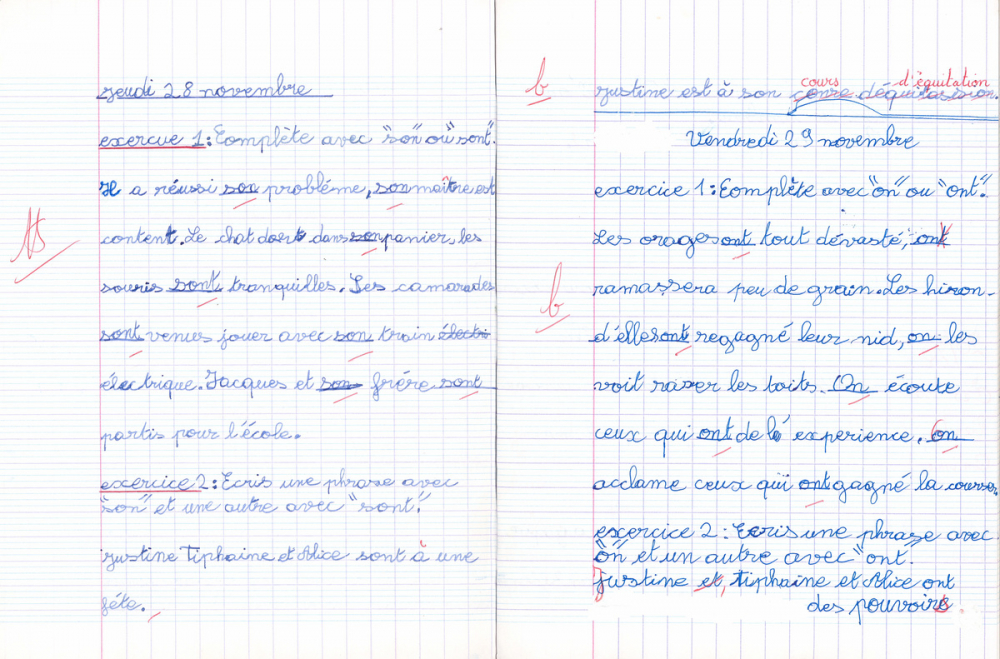 jeudi 28 novembre
exercue 1 : Complète avec "son" ou "sont".
Il a réussi son probléme, son maître est
content. Le chat dort dans son panier, les
souris sont tranquilles. Les camarades
sont venus jouer avec son train électri
électrique. Jacques et son frére sont
partis pour l'école.
exercice 2 : Ecris une phrase avec
"son" et une autre avec "sont".
justine Tiphaine et Alice sont à une
féte.
AB
b
cours d'équitation
justine est à son déquitassion.
Vendredi 29 novembre
exercice 1 : Complète avec "on" ou "ont".
Les orages ont tout dévasté, ont
ramassera peu de grain. Les hiron-
d'elle sont regagné leur nid, on les
b
voit raser les toits. On écoute
ceux qui ont de l'experience. on
acclame ceux qui ont gagné la course.
exercice 2 : Ecris une phrase avec
"on" et un autre avec "ont".
Justine et, Tiphaine et Alice ont
des pouvoirs.